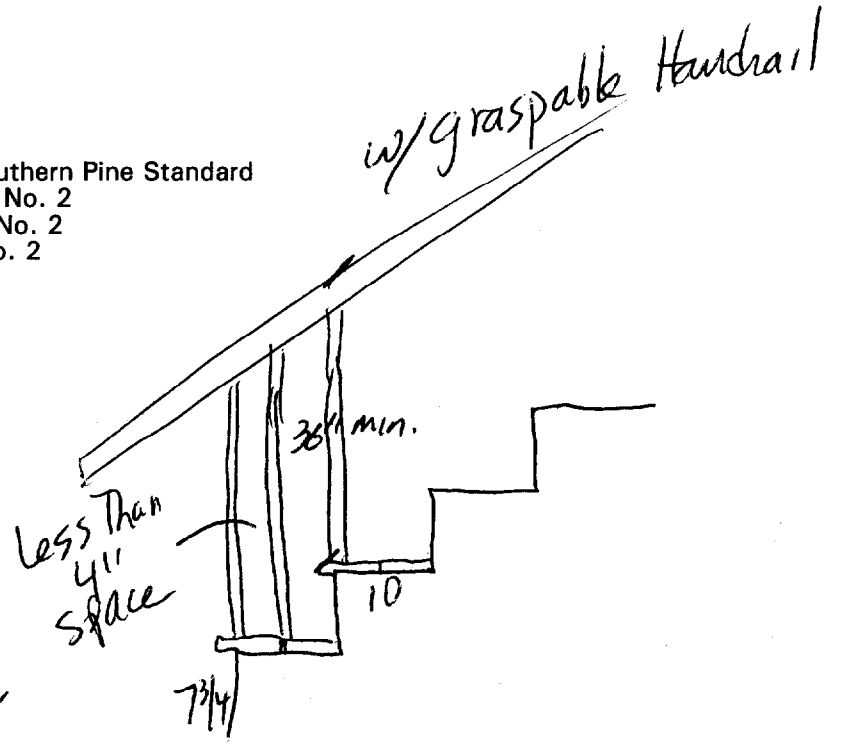 w/graspable Handrail
uthern Pine Standard
No. 2
No. 2
o. 2
36" min.
Less Than
4"
space
10
7 3/4